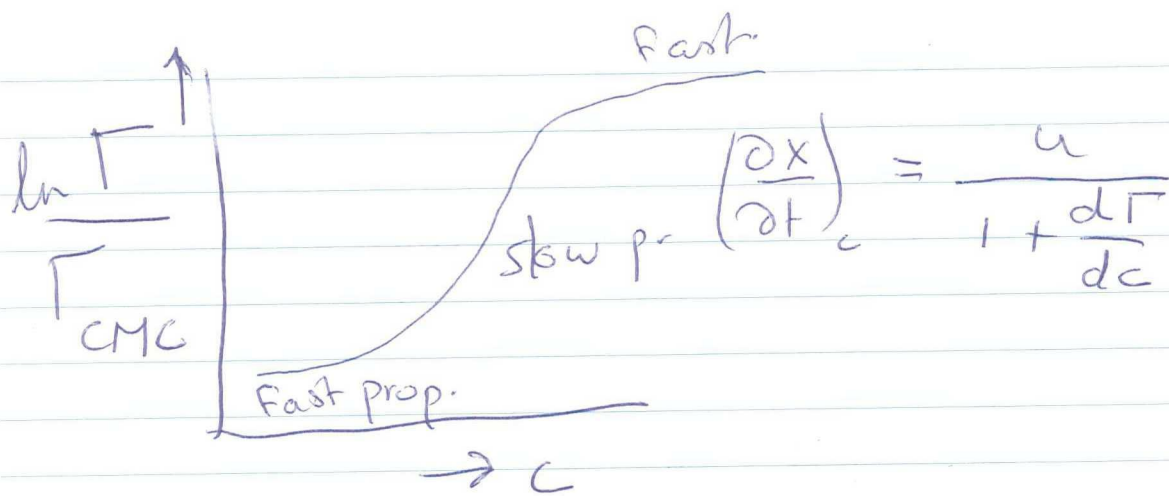 Fast.
ln Γ / Γ CMC
slow p. (∂x/∂t)c = u / (1 + dΓ/dc)
Fast prop.
→ c